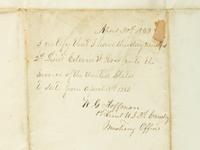 April 30th 1863
I certify that I have this day mustered
2d Lieut Edward W. Rose into the
service of the United States
to date from April 1863
W. G. Hoffman
1st Lieut U.S. Cavalry
Mustering Officer